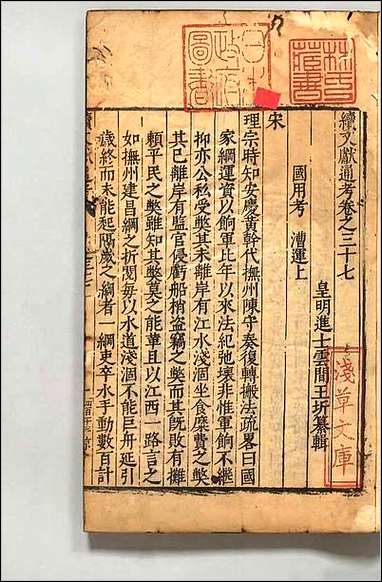 續文獻通考卷之三十七
皇明進士雲間王圻纂輯
國用考 漕運上
宋
理宗時知安慶黃幹代撫州陳守奏復轉搬法疏畧曰國
家綱運資以餉軍比年以來法紀弛壞非惟軍餉不繼
抑亦公私受獘其未離岸有江水淺涸坐食糜費之獘
其已離岸有監官侵虧船稍盜竊之獘而其旣敗有攤
賴平民之獘雖知其獘莫之能革且以江西一路言之
如撫州建昌綱之折閱每以水道淺涸不能巨舟延引
歲終而未能起隔歲之綱者一綱吏卒水手動數百計
淺草文庫
林氏藏書
日本政府圖書